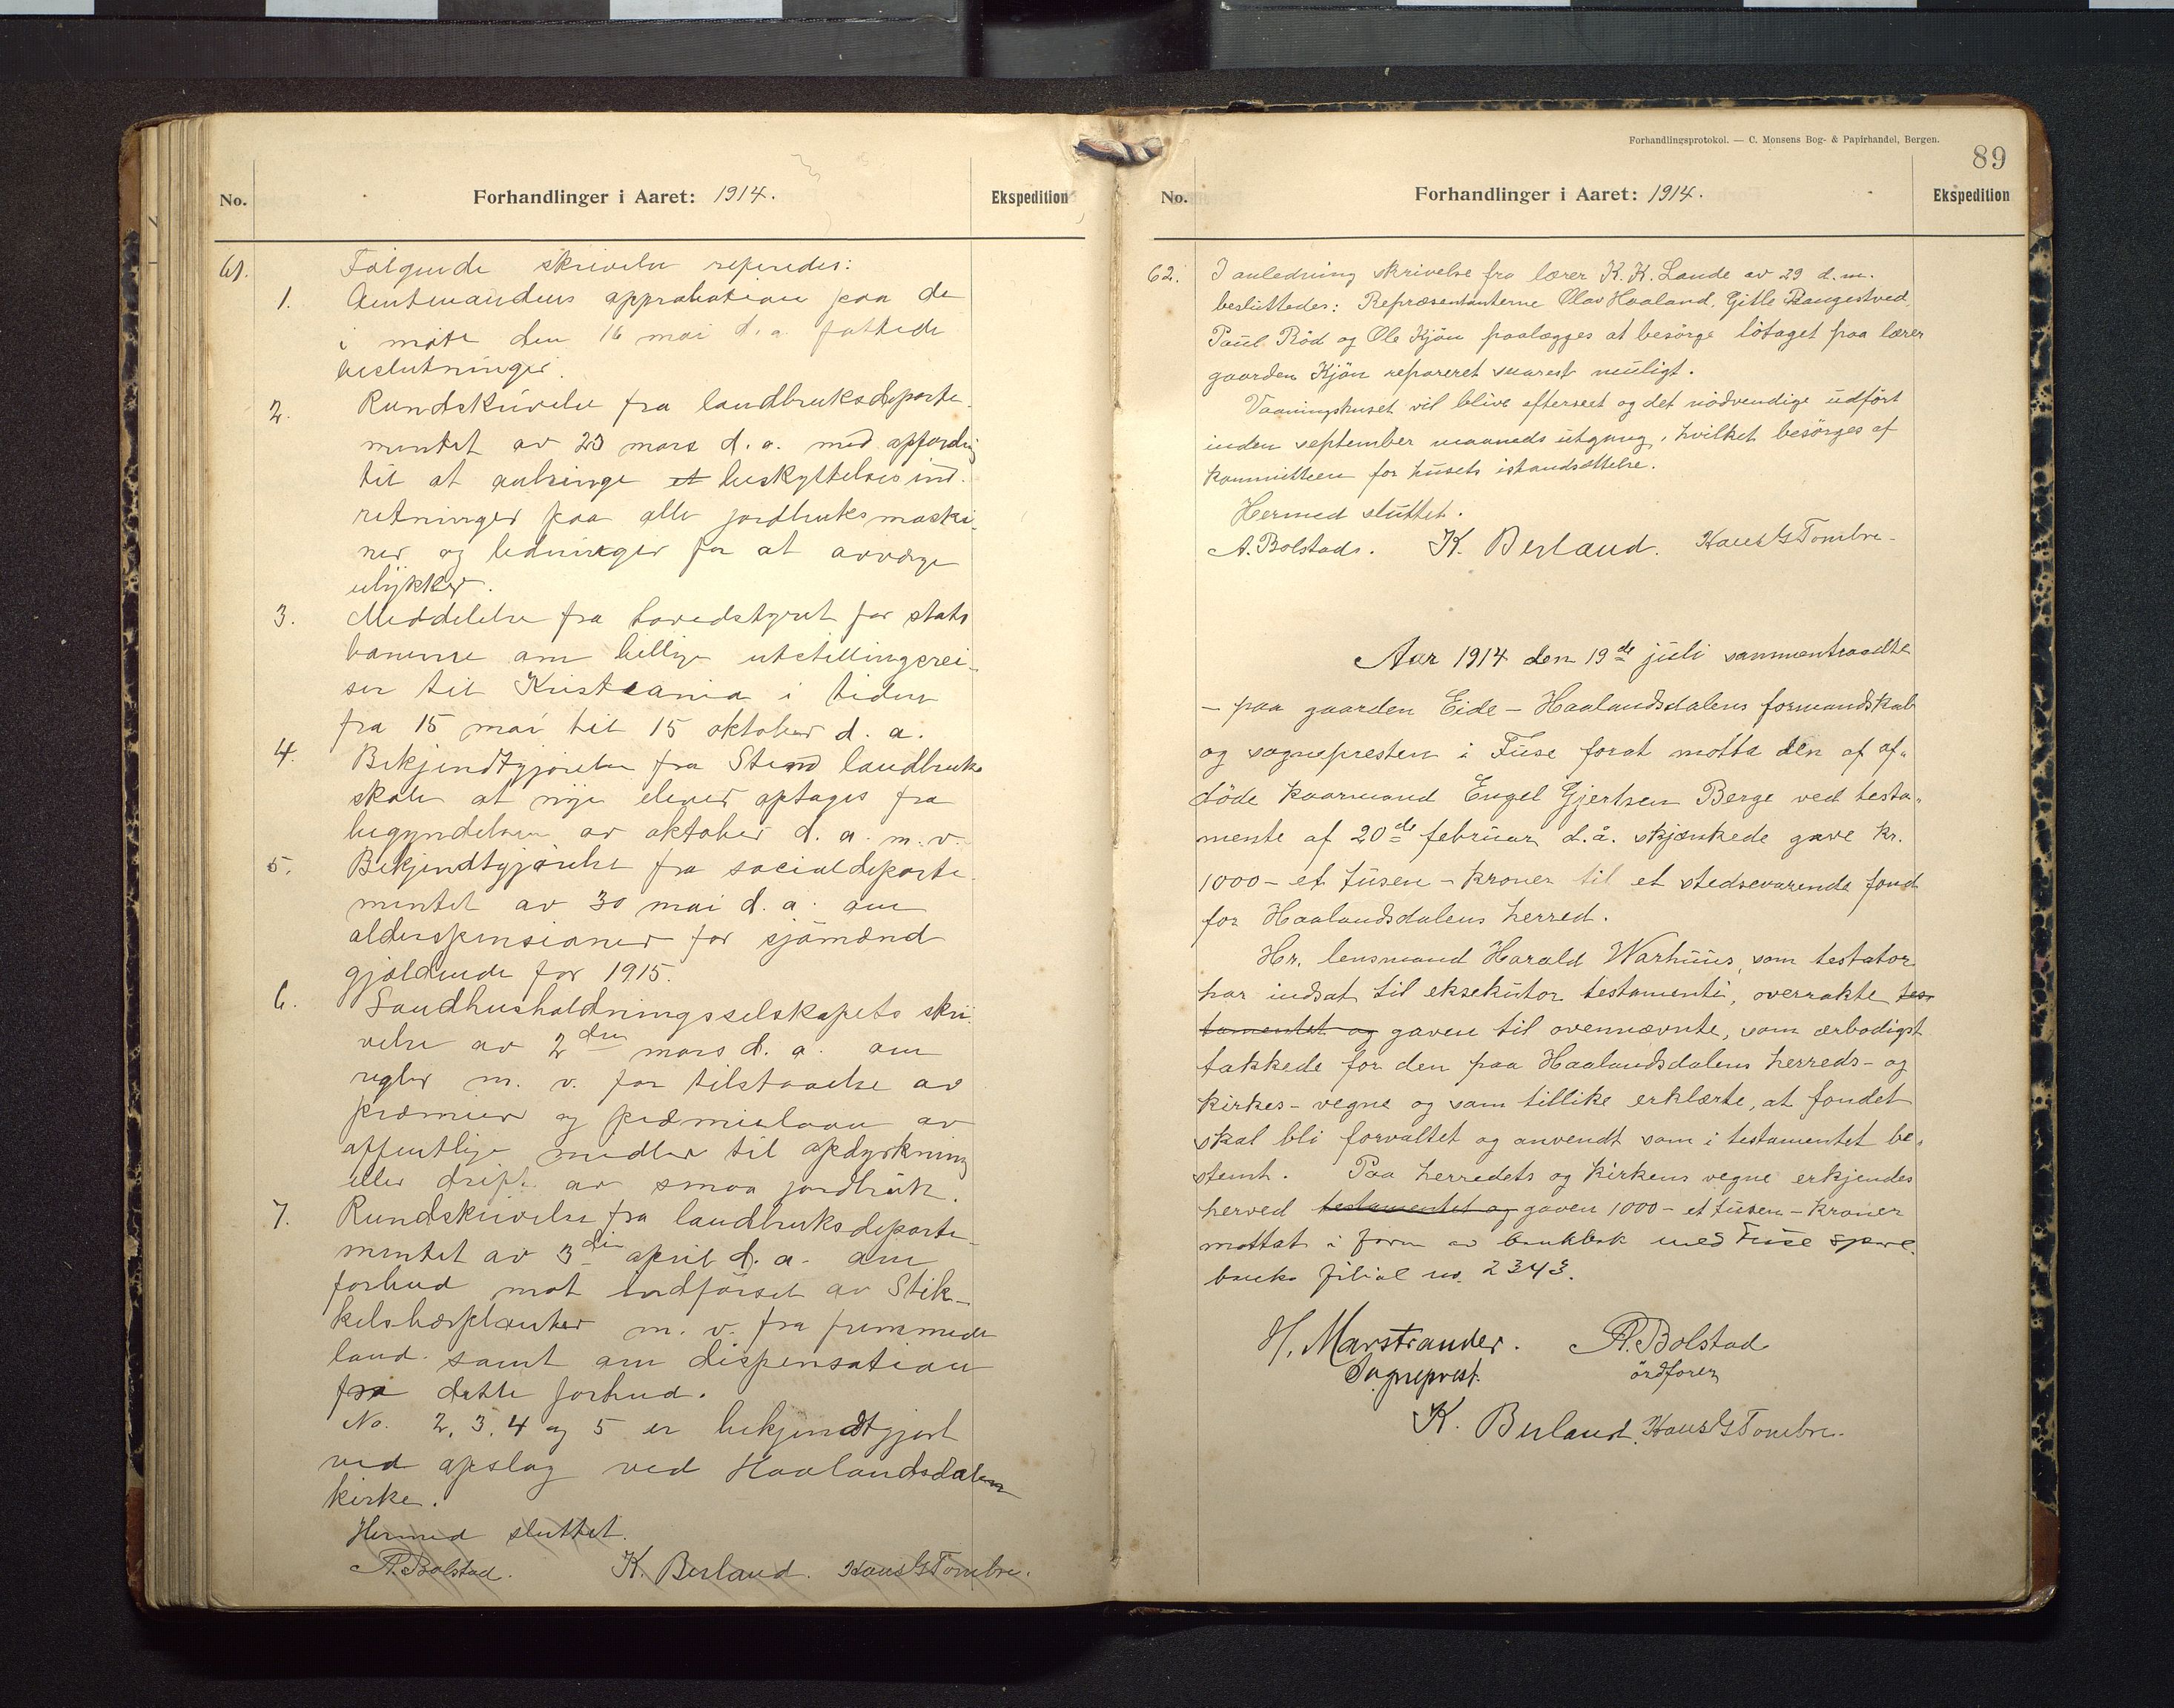 No.
Forhandlinger i Aaret: 1914.
Ekspedition
61. Følgende skrivelser refereredes:
1. Amtmandens approbation paa de
i møte den 16 mai d. a. fattede
beslutninger.
2. Rundskrivelse fra landbruksdeparte-
mentet av 23 mars d. a. med opfordring
til at anbringe et beskyttelsesind-
retninger paa alle jordbruksmaski-
ner og ledninger for at avværge
ulykker.
3. Meddelelse fra hovedstyret for stats
banerne om billige utstillingsrei-
ser til Kristiania i tiden
fra 15 mai til 15 oktober d. a.
4. Bekjendtgjørelse fra Stend landbruks
skole at nye elever optages fra
begyndelsen av oktober d. a. m. v.
5. Bekjendtgjørelse fra socialdeparte-
mentet av 30 mai d. a. om
alderspensioner for sjømænd
gjældende for 1915.
6. Landhusholdningsselskapets skri-
velse av 2den mars d. a. om
regler m. v. for tilstaaelse av
præmier og præmielaan av
offentlige midler til opdyrkning
eller drift av smaa jordbruk.
7. Rundskrivelse fra landbruksdeparte-
mentet av 3die april d. a. om
forbud mot indførsel av Stik-
kelsbærplanter m. v. fra fremmede
land samt om dispensation
fra dette forbud.
No. 2, 3, 4 og 5 er bekjendtgjort
ved opslag ved Haalandsdalen
kirke.
Hermed sluttet.
A. Bolstad. K. Berland. Hans G Tombre.
Forhandlingsprotokol. — C. Monsens Bog- & Papirhandel, Bergen.
89
No.
Forhandlinger i Aaret: 1914.
Ekspedition
62. I anledning skrivelse fra lærer K. K. Lande av 29 d.m.
besluttedes: Repræsentanterne Olav Haaland, Gitle Rangestved,
Paul Röd og Ole Kjön paalægges at besörge lötaget paa lærer
gaarden Kjön repareret snarest muligt.
Vaaningshuset vil blive efterseet og det nödvendige udfört
inden september maaneds utgang, hvilket besörges af
kommitteen for husets istandsættelse.
Hermed sluttet.
A. Bolstad. K. Berland. Hans G Tombre.
Aar 1914 den 19de juli sammentraadte
– paa gaarden Eide – Haalandsdalens formandskab
og sognepresten i Fuse forat motta den af af-
döde kaarmand Engel Gjertsen Berge ved testa-
mente af 20de februar d.å. skjænkede gave kr.
1000 – et tusen – kroner til et stedsevarende fond
for Haalandsdalens herred.
Hr. lensmand Harald Warhuus, som testator
har indsat til eksekutor testamenti, overrakte tes-
tamentet og gaven til ovennævnte, som ærbodigst
takkede for den paa Haalandsdalens herreds- og
kirkes- vegne og som tillike erklærte, at fondet
skal bli forvaltet og anvendt som i testamentet be-
stemt. Paa herredets og kirkens vegne erkjendes
herved testamentet og gaven 1000 – et tusen – kroner
mottat i form av bankbok med Fuse spare-
banks filial no. 2343.
H. Marstrander. A. Bolstad
Sogneprest. ordförer
K. Berland. Hans G Tombre.